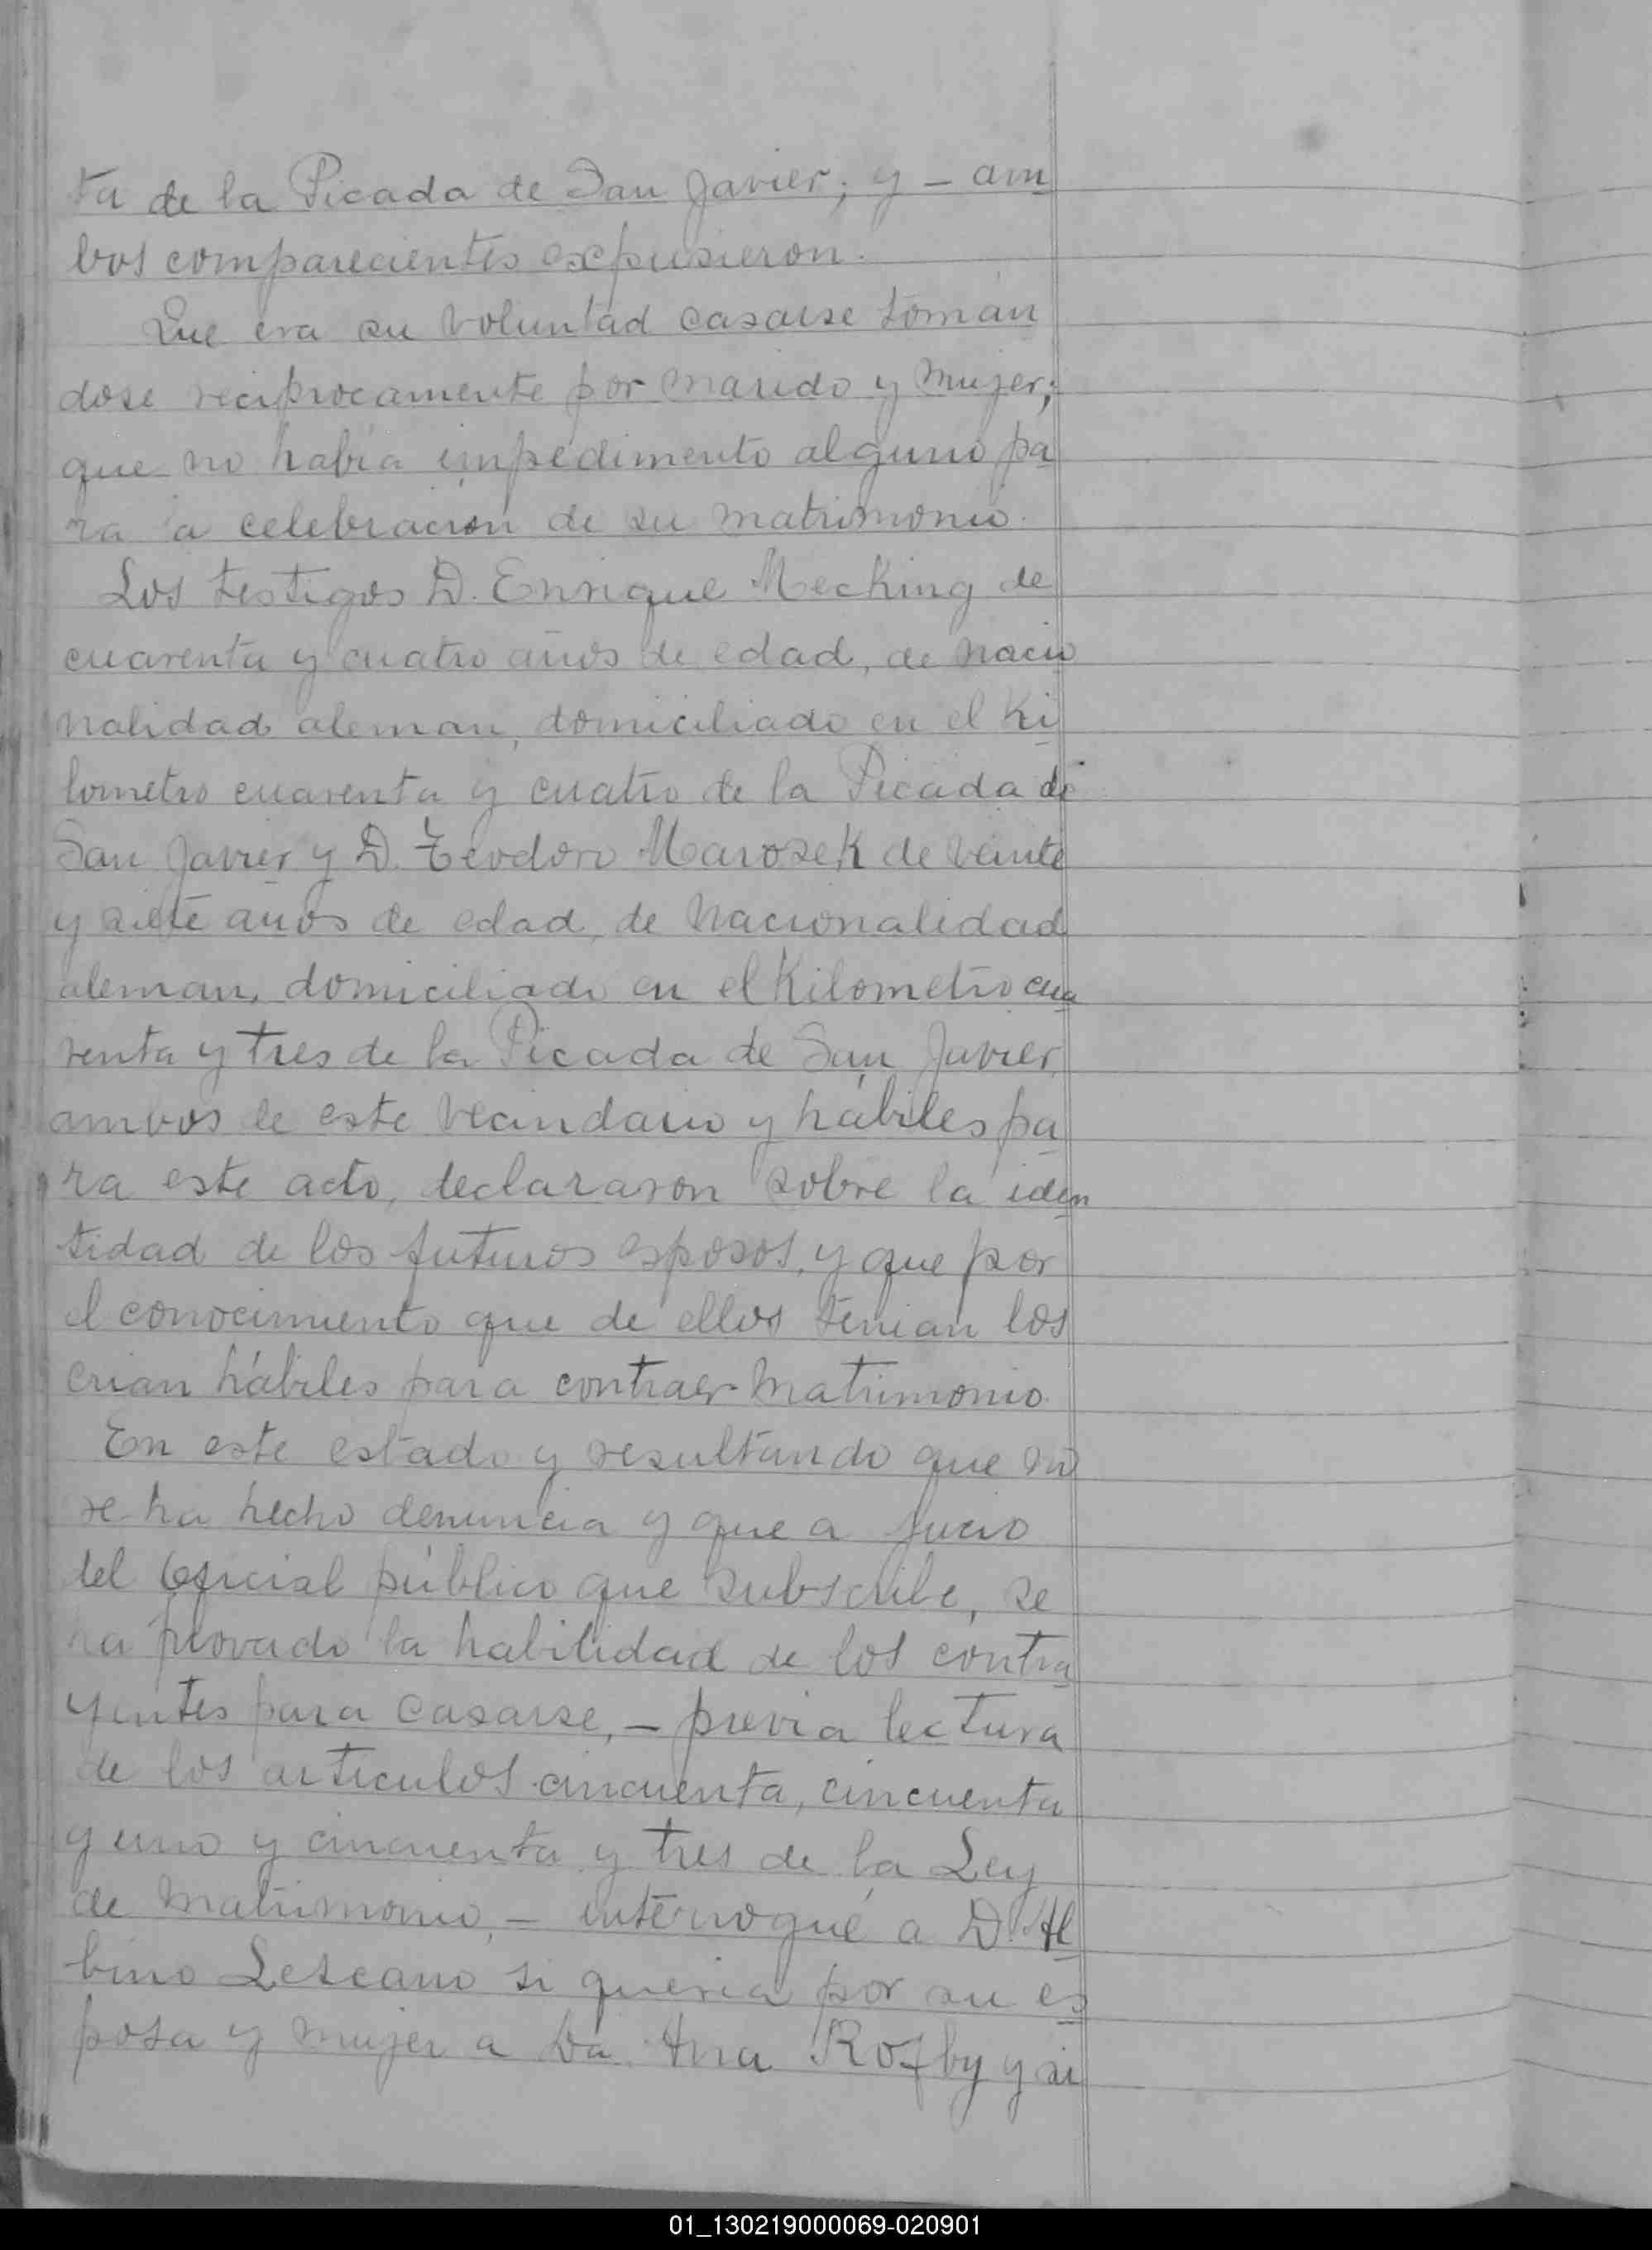 ta de la Picada de San Javier; y - am
bos comparecientes expusieron.
Que era su voluntad casarse tomán
dose reciprocamente por marido y mujer;
que no había impedimento alguno pa
ra la celebración de su matrimonio.
Los testigos D. Enrique Mecking de
cuarenta y cuatro años de edad, de nacio
nalidad aleman, domiciliado en el Ki
lometro cuarenta y cuatro de la Picada de
San Javier y D. Teodoro Marosek de veinte
y siete años de edad, de nacionalidad
aleman, domiciliado en el Kilometro cua
renta y tres de la Picada de San Javier,
ambos de este vecindario y hábiles pa
ra este acto, declararon sobre la iden
tidad de los futuros esposos, y que por
el conocimiento que de ellos tenian los
crian hábiles para contraer matrimonio.
En este estado y resultando que no
se ha hecho denuncia y que a jucio
del Oficial público que subscribe, se
ha provado la habilidad de los contra
yentes para casarse, - previa lectura
de los articulos cincuenta, cincuenta
y uno y cincuenta y tres de la Ley
de Matrimonio, - interrogué a D. Al
bino Lescano si queria por su es
posa y mujer a Da. Ana Rozby y si
01_130219000069-020901